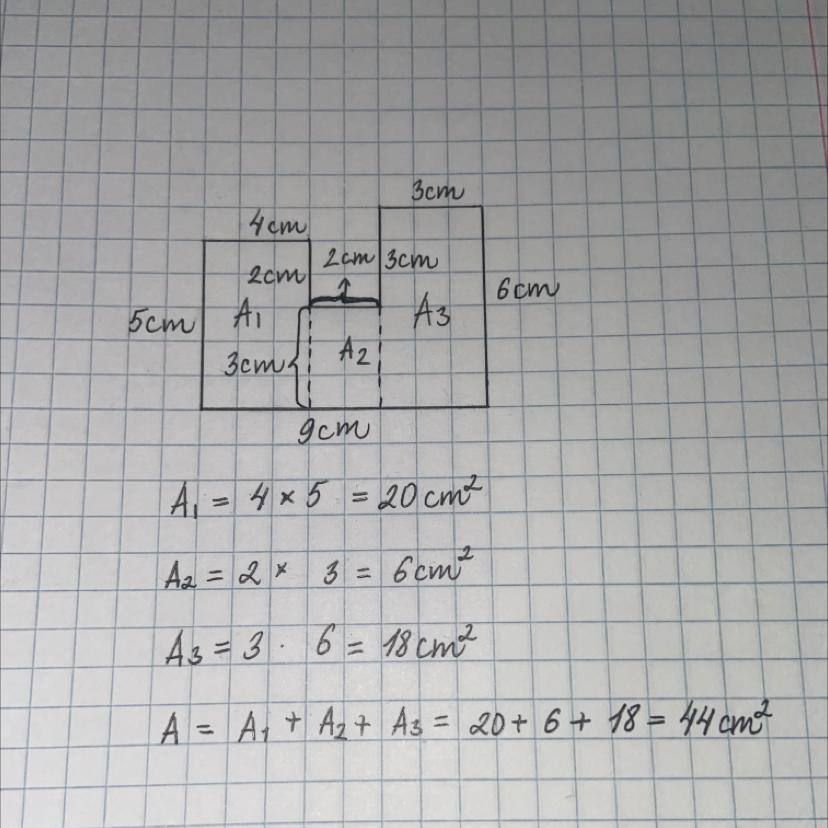 3cm
4cm
2cm 3cm
2cm
6cm
5cm A₁ A₃
A₂
3cm
9cm
A₁ = 4 × 5 = 20 cm²
A₂ = 2 × 3 = 6 cm²
A₃ = 3 · 6 = 18 cm²
A = A₁ + A₂ + A₃ = 20 + 6 + 18 = 44 cm²